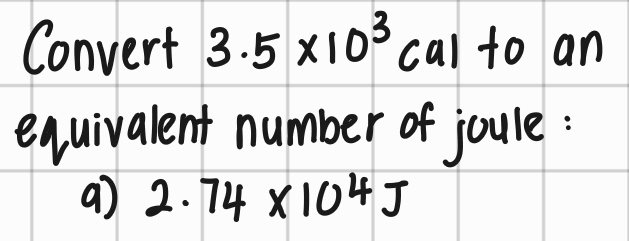 Convert 3.5 ×10³ cal to an
equivalent number of joule :
a) 2.74 ×10⁴ J